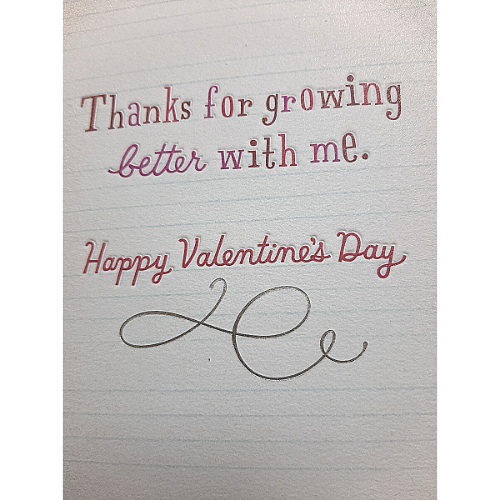 Thanks for growing
better with me.
Happy Valentine's Day